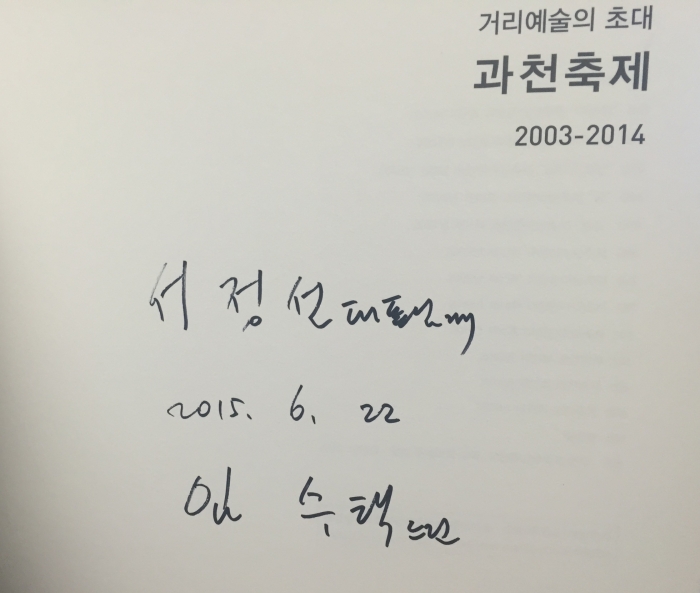 거리예술의 초대
과천축제
2003-2014
서 정 선 대표님께
2015. 6. 22
임 수 택 드림